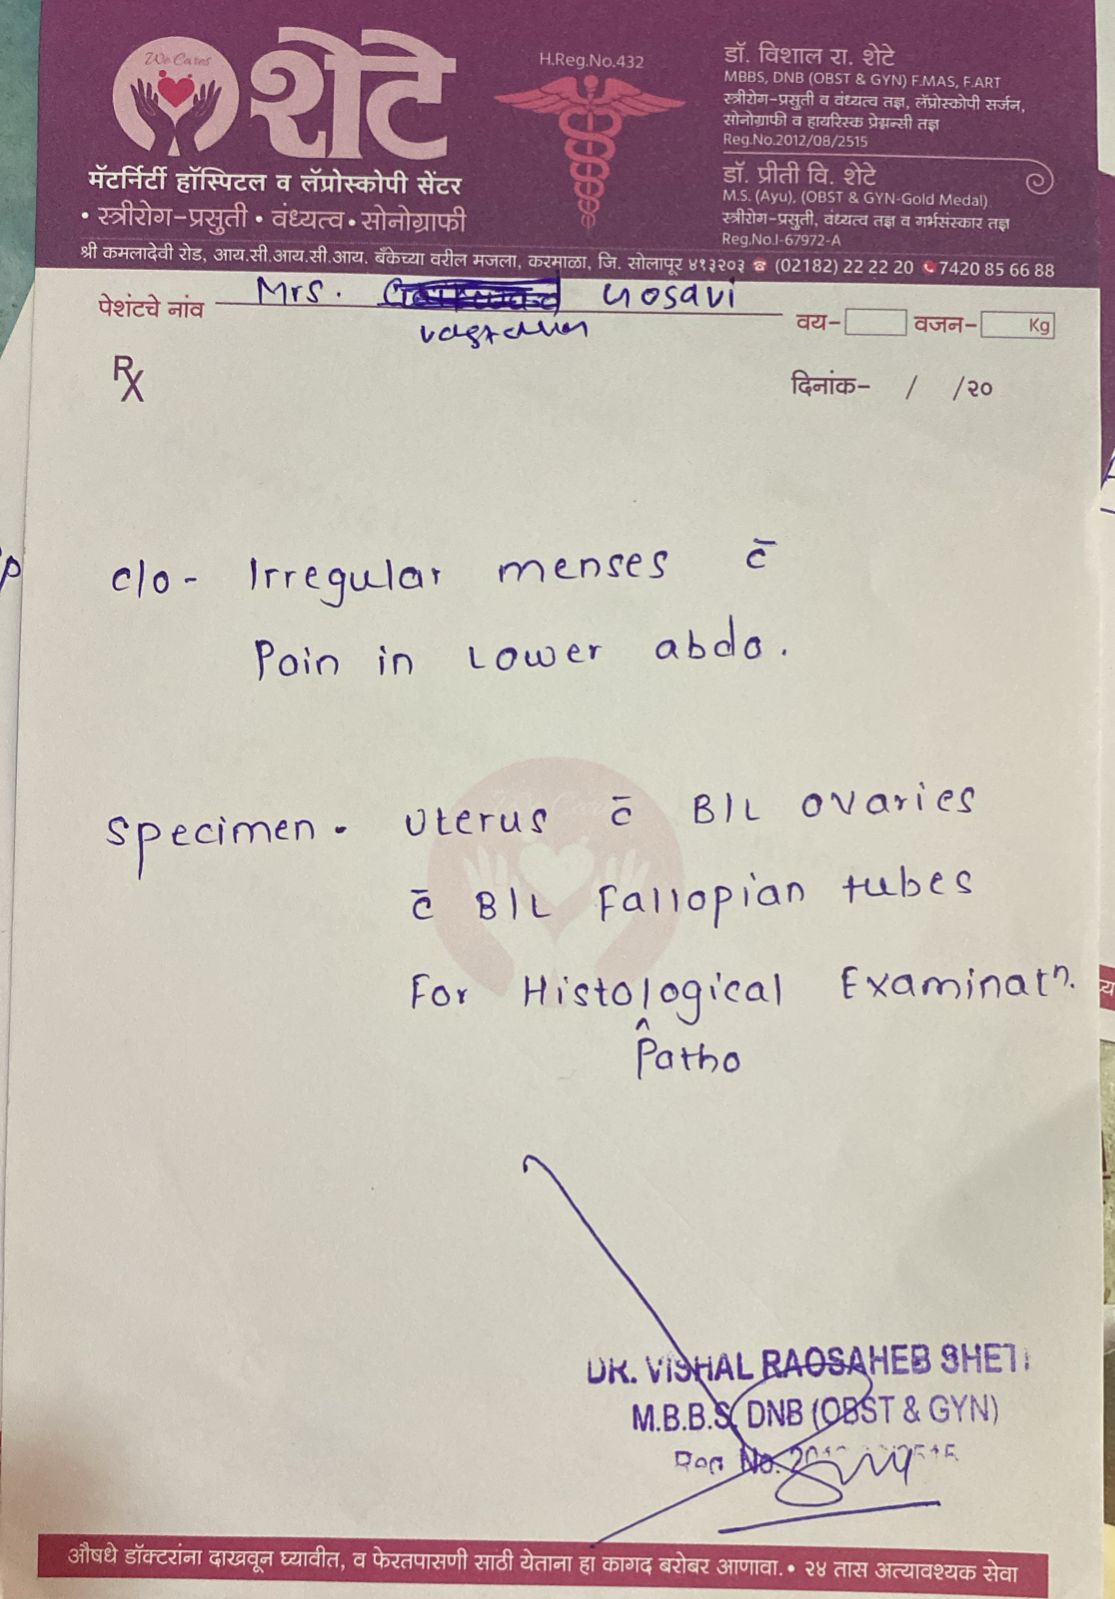 We Cares
शेटे
मॅटर्निटी हॉस्पिटल व लॅप्रोस्कोपी सेंटर
• स्त्रीरोग-प्रसुती • वंध्यत्व • सोनोग्राफी
H.Reg.No.432
डॉ. विशाल रा. शेटे
MBBS, DNB (OBST & GYN) F.MAS, F.ART
स्त्रीरोग-प्रसुती व वंध्यत्व तज्ञ, लॅप्रोस्कोपी सर्जन,
सोनोग्राफी व हायरिस्क प्रेग्नन्सी तज्ञ
Reg.No.2012/08/2515
डॉ. प्रीती वि. शेटे
M.S. (Ayu), (OBST & GYN-Gold Medal)
स्त्रीरोग-प्रसुती, वंध्यत्व तज्ञ व गर्भसंस्कार तज्ञ
Reg.No.I-67972-A
श्री कमलादेवी रोड, आय.सी.आय.सी.आय. बँकेच्या वरील मजला, करमाळा, जि. सोलापूर ४१३२०३ ☎ (02182) 22 22 20 7420 85 66 88
पेशंटचे नांव Mrs. Gosavi
वय- वजन- Kg
Rx
दिनांक- / /२०
c/o - Irregular menses c̄
Pain in Lower abdo.
Specimen - Uterus c̄ B/L ovaries
c̄ B/L Fallopian tubes
For Histological Examinatⁿ.
^
Patho
DR. VISHAL RAOSAHEB SHETE
M.B.B.S. DNB (OBST & GYN)
Reg No.
औषधे डॉक्टरांना दाखवून घ्यावीत, व फेरतपासणी साठी येताना हा कागद बरोबर आणावा. • २४ तास अत्यावश्यक सेवा